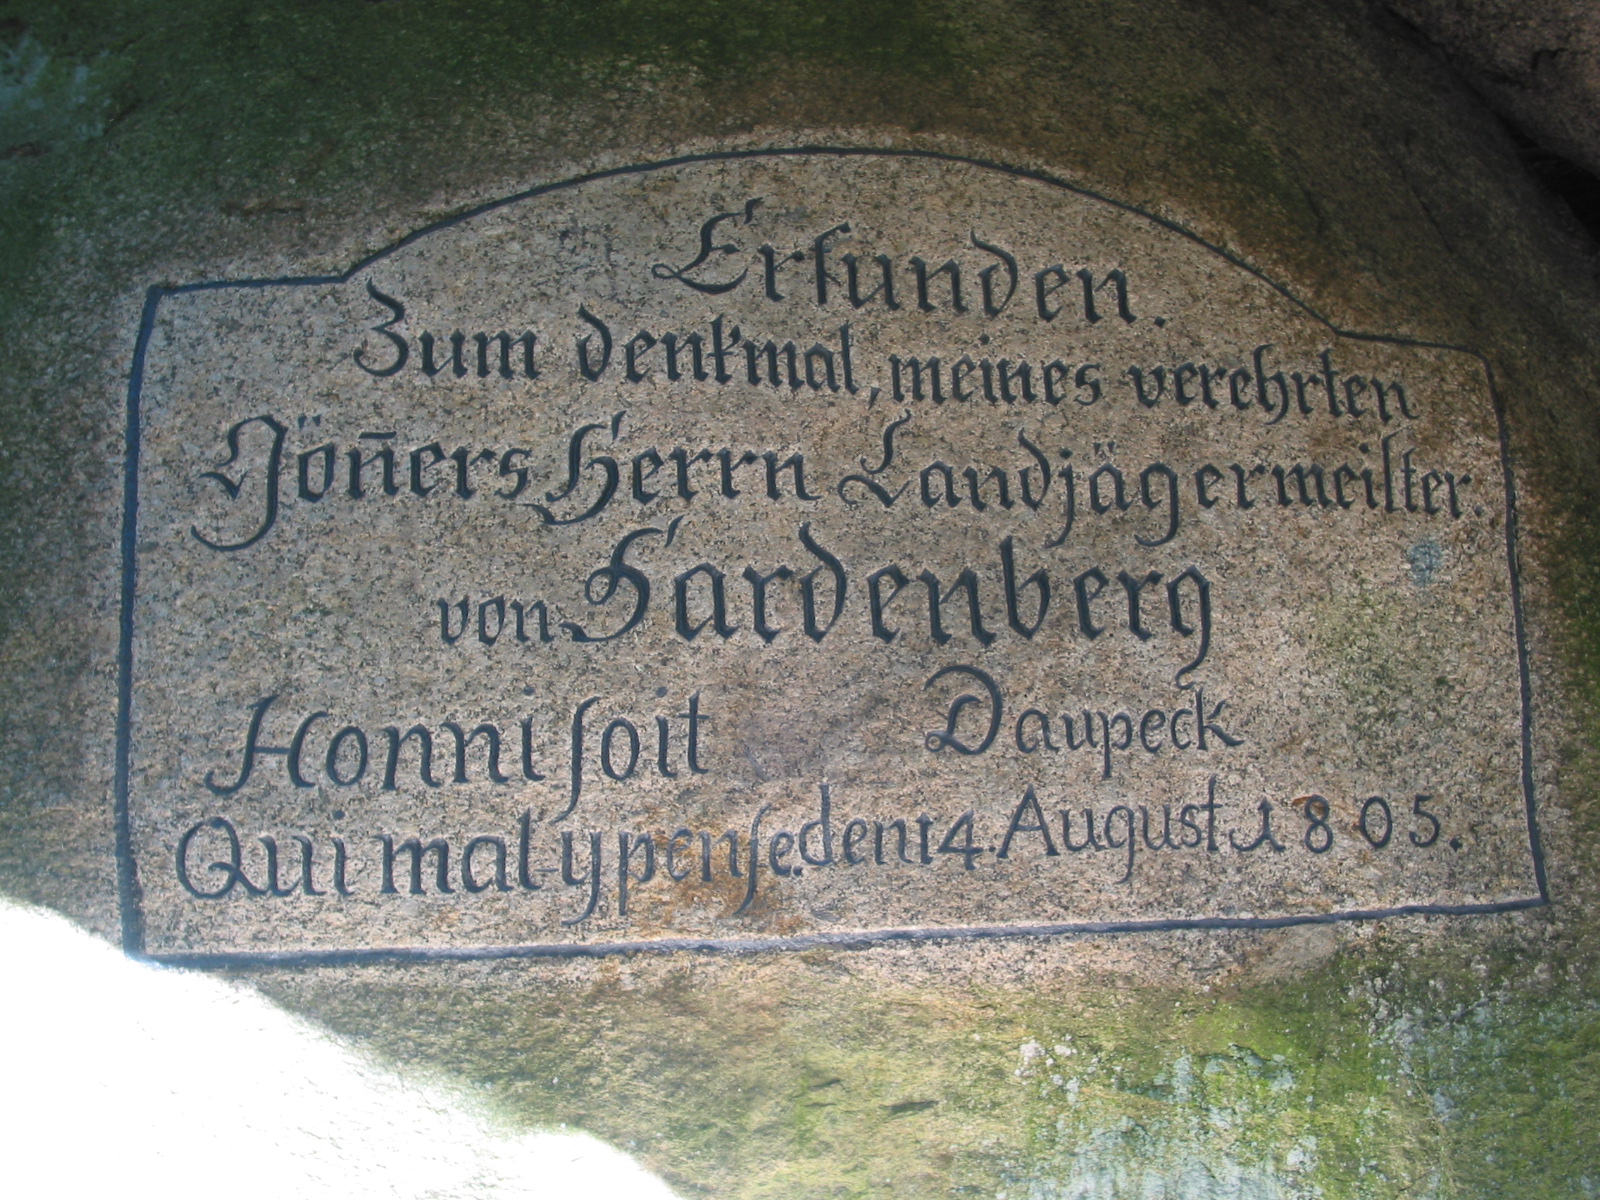 Erfunden.
Zum denkmal, meines verehrten
Göñers Herrn Landjägermeiſter.
von Hardenberg
Honni ſoit Daupeck
Qui mal-ypenſe. den 14. August 1805.